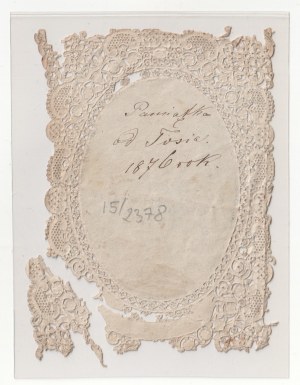 Pamiątka
od Tosie.
1876 rok.
15/2378